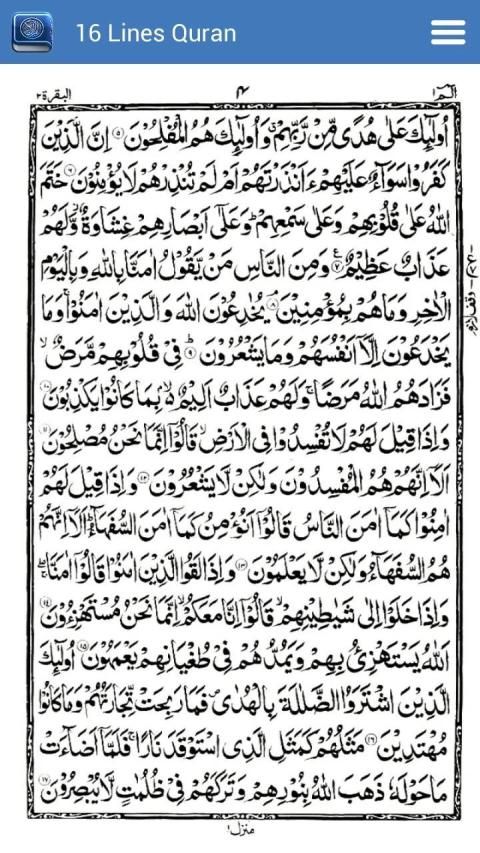 16 Lines Quran
الٓمّٓ ١
۴
البقرة ٢
اُولٰٓئِكَ عَلٰى هُدًى مِّنْ رَّبِّهِمْ ۙ وَاُولٰٓئِكَ هُمُ الْمُفْلِحُوْنَ ۝۵ اِنَّ الَّذِيْنَ
كَفَرُوْا سَوَآءٌ عَلَيْهِمْ ءَاَنْذَرْتَهُمْ اَمْ لَمْ تُنْذِرْهُمْ لَا يُؤْمِنُوْنَ ۝۶ خَتَمَ
اللّٰهُ عَلٰى قُلُوْبِهِمْ وَعَلٰى سَمْعِهِمْ ؕ وَعَلٰٓى اَبْصَارِهِمْ غِشَاوَةٌ ۫ وَّلَهُمْ
عَذَابٌ عَظِيْمٌ ۝۷ وَمِنَ النَّاسِ مَنْ يَّقُوْلُ اٰمَنَّا بِاللّٰهِ وَبِالْيَوْمِ
الْاٰخِرِ وَمَا هُمْ بِمُؤْمِنِيْنَ ۝۸ يُخٰدِعُوْنَ اللّٰهَ وَالَّذِيْنَ اٰمَنُوْا ۚ وَمَا
يَخْدَعُوْنَ اِلَّآ اَنْفُسَهُمْ وَمَا يَشْعُرُوْنَ ۝۹ فِيْ قُلُوْبِهِمْ مَّرَضٌ ۙ
فَزَادَهُمُ اللّٰهُ مَرَضًا ۚ وَلَهُمْ عَذَابٌ اَلِيْمٌۢ ۙ بِمَا كَانُوْا يَكْذِبُوْنَ ۝۱۰
وَاِذَا قِيْلَ لَهُمْ لَا تُفْسِدُوْا فِي الْاَرْضِ ۙ قَالُوْٓا اِنَّمَا نَحْنُ مُصْلِحُوْنَ ۝۱۱
اَلَآ اِنَّهُمْ هُمُ الْمُفْسِدُوْنَ وَلٰكِنْ لَّا يَشْعُرُوْنَ ۝۱۲ وَاِذَا قِيْلَ لَهُمْ
اٰمِنُوْا كَمَآ اٰمَنَ النَّاسُ قَالُوْٓا اَنُؤْمِنُ كَمَآ اٰمَنَ السُّفَهَآءُ ؕ اَلَآ اِنَّهُمْ
هُمُ السُّفَهَآءُ وَلٰكِنْ لَّا يَعْلَمُوْنَ ۝۱۳ وَاِذَا لَقُوا الَّذِيْنَ اٰمَنُوْا قَالُوْٓا اٰمَنَّا ۖۚ
وَاِذَا خَلَوْا اِلٰى شَيٰطِيْنِهِمْ ۙ قَالُوْٓا اِنَّا مَعَكُمْ ۙ اِنَّمَا نَحْنُ مُسْتَهْزِءُوْنَ ۝۱۴
اَللّٰهُ يَسْتَهْزِئُ بِهِمْ وَيَمُدُّهُمْ فِيْ طُغْيَانِهِمْ يَعْمَهُوْنَ ۝۱۵ اُولٰٓئِكَ
الَّذِيْنَ اشْتَرَوُا الضَّلٰلَةَ بِالْهُدٰى ۪ فَمَا رَبِحَتْ تِّجَارَتُهُمْ وَمَا كَانُوْا
مُهْتَدِيْنَ ۝۱۶ مَثَلُهُمْ كَمَثَلِ الَّذِي اسْتَوْقَدَ نَارًا ۚ فَلَمَّآ اَضَآءَتْ
مَا حَوْلَهٗ ذَهَبَ اللّٰهُ بِنُوْرِهِمْ وَتَرَكَهُمْ فِيْ ظُلُمٰتٍ لَّا يُبْصِرُوْنَ ۝۱۷
منزل ١